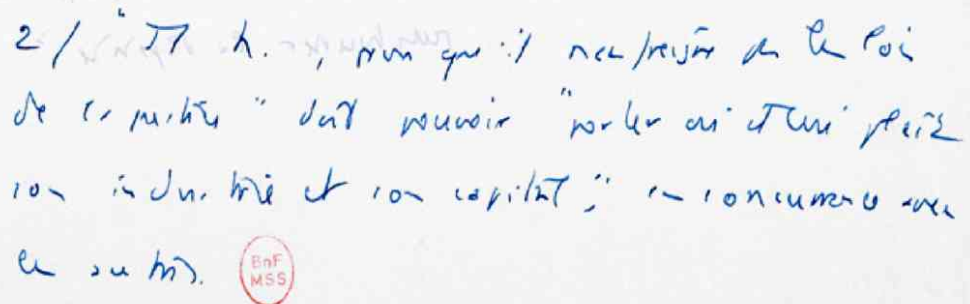 2/ "Tt h. , pourvu qu'il n'enfreigne pas les lois
de la justice" doit pouvoir "porter où il lui plaît
son industrie et son capital", en concurrence avec
les autres.
BnF
MSS